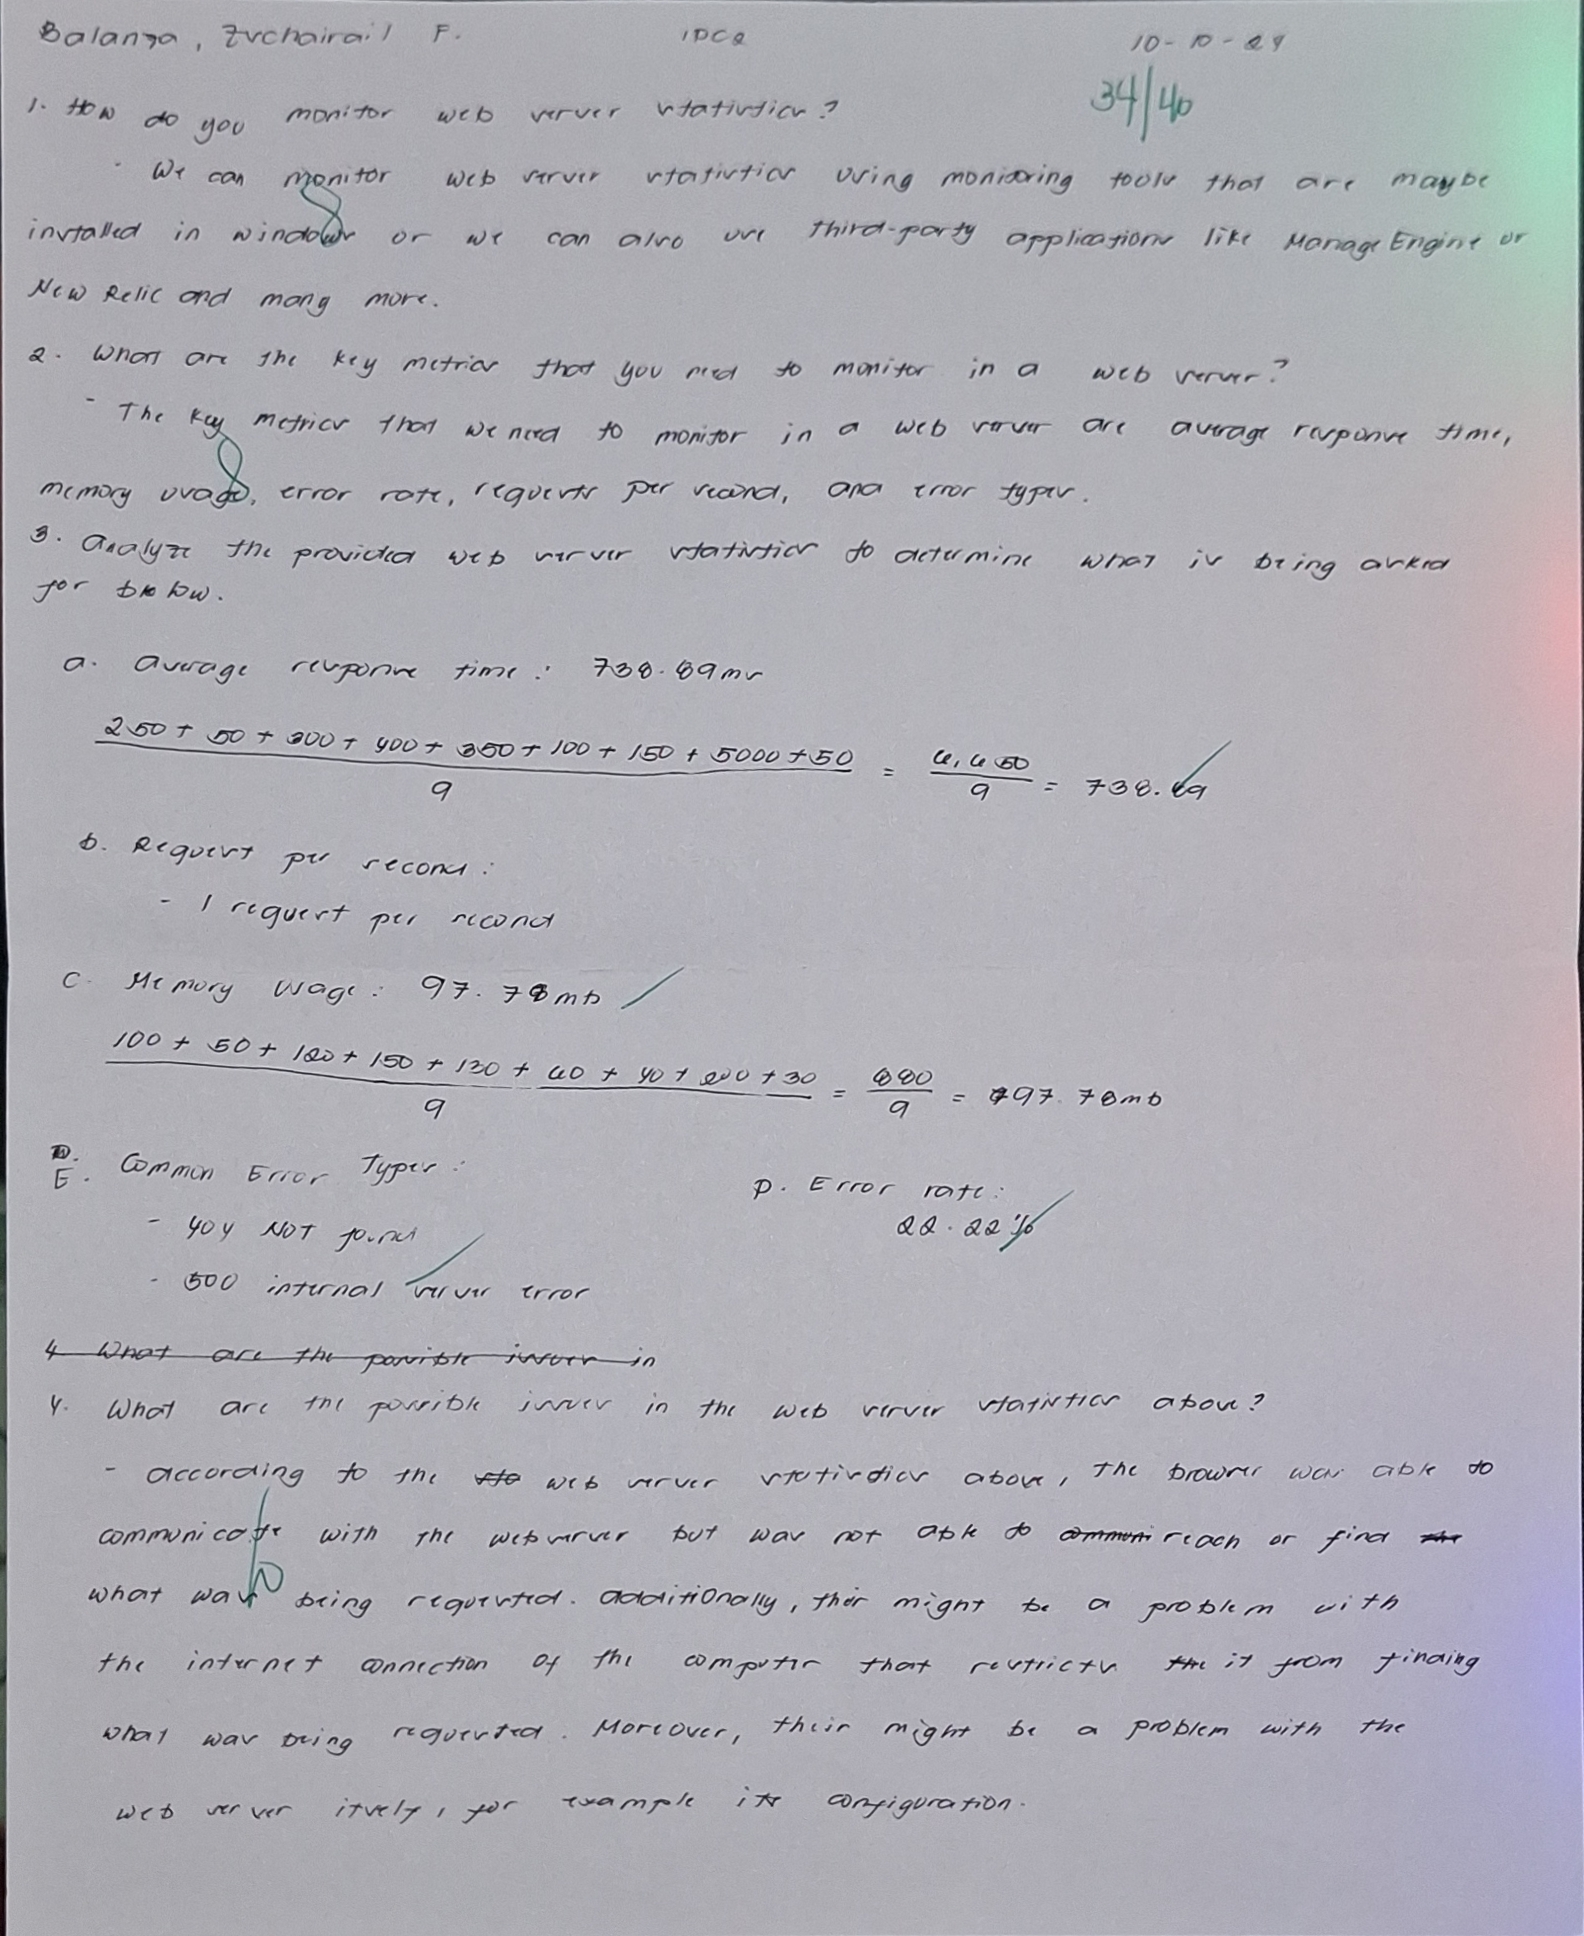 Balanga, Zuchairail F. IDC2 10-10-24
34/40
1. How do you monitor web server statistics?
- We can monitor web server statistics using monitoring tools that are maybe
8
installed in windows or we can also use third-party applications like ManageEngine or
New Relic and many more.
2. What are the key metrics that you need to monitor in a web server?
- The key metrics that we need to monitor in a web server are average response time,
8
memory usage, error rate, requests per second, and error types.
3. Analyze the provided web server statistics to determine what is being asked
for below.
a. Average response time: 738.89ms
250 + 50 + 300 + 400 + 350 + 100 + 150 + 5000 + 50 / 9 = 6,650 / 9 = 738.89
b. Request per second:
- 1 request per second
C. Memory usage: 97.78mb
100 + 50 + 120 + 150 + 130 + 60 + 40 + 200 + 30 / 9 = 880 / 9 = 97.78mb
E. Common Error Types:
D. Error rate:
- 404 NOT found
22.22%
- 500 internal server error
4. What are the possible issues in
4. What are the possible issues in the web server statistics above?
- according to the web server statistics above, the browser was able to
communicate with the webserver but was not able to reach or find
10
what was being requested. additionally, their might be a problem with
the internet connection of the computer that restricts it from finding
what was being requested. Moreover, their might be a problem with the
web server itself, for example its configuration.